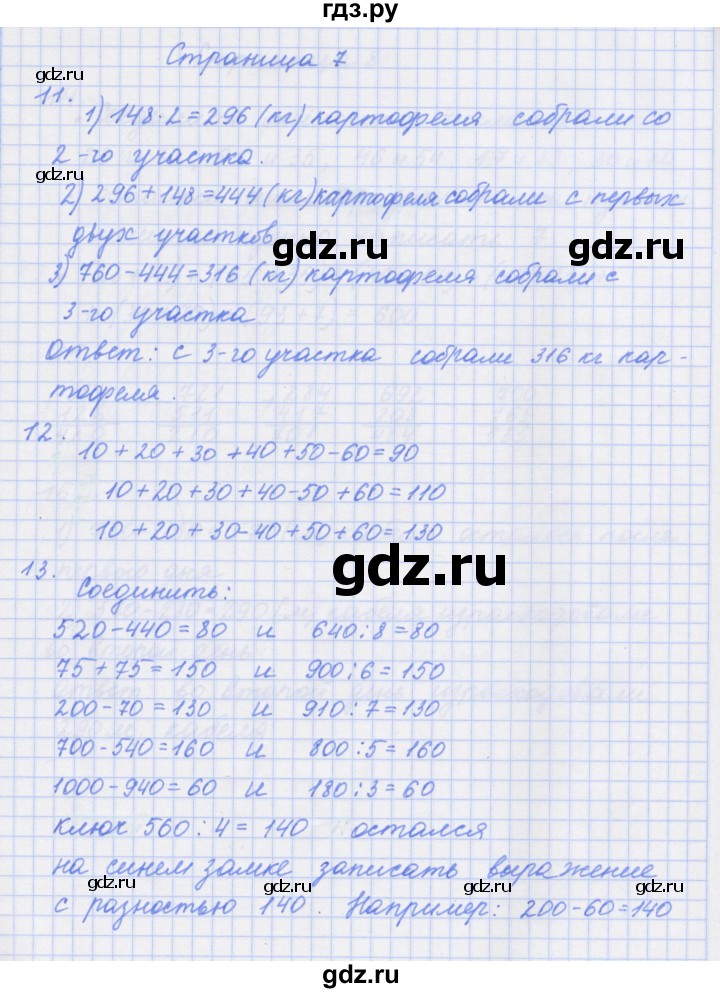 гдз.ру
Страница 7
gdz.ru
11.
1) 148·2=296 (кг) картофеля собрали со
2-го участка.
gdz.ru
2) 296+148=444(кг)картофеля собрали с первых
двух участков
gdz.ru
3) 760-444=316 (кг) картофеля собрали с
3-го участка
Ответ: с 3-го участка собрали 316 кг кар-
тофеля.
12.
10+20+30+40+50-60=90
10+20+30+40-50+60=110
10+20+30-40+50+60=130
gdz.ru
13.
Соединить:
520-440=80 и 640:8=80
75+75=150 и 900:6=150
200-70=130 и 910:7=130
700-540=160 и 800:5=160
1000-940=60 и 180:3=60
ключ 560:4=140 остался
на синем замке записать выражение
gdz.ru gdz.ru gdz.ru
с разностью 140. Например: 200-60=140
gdz.ru